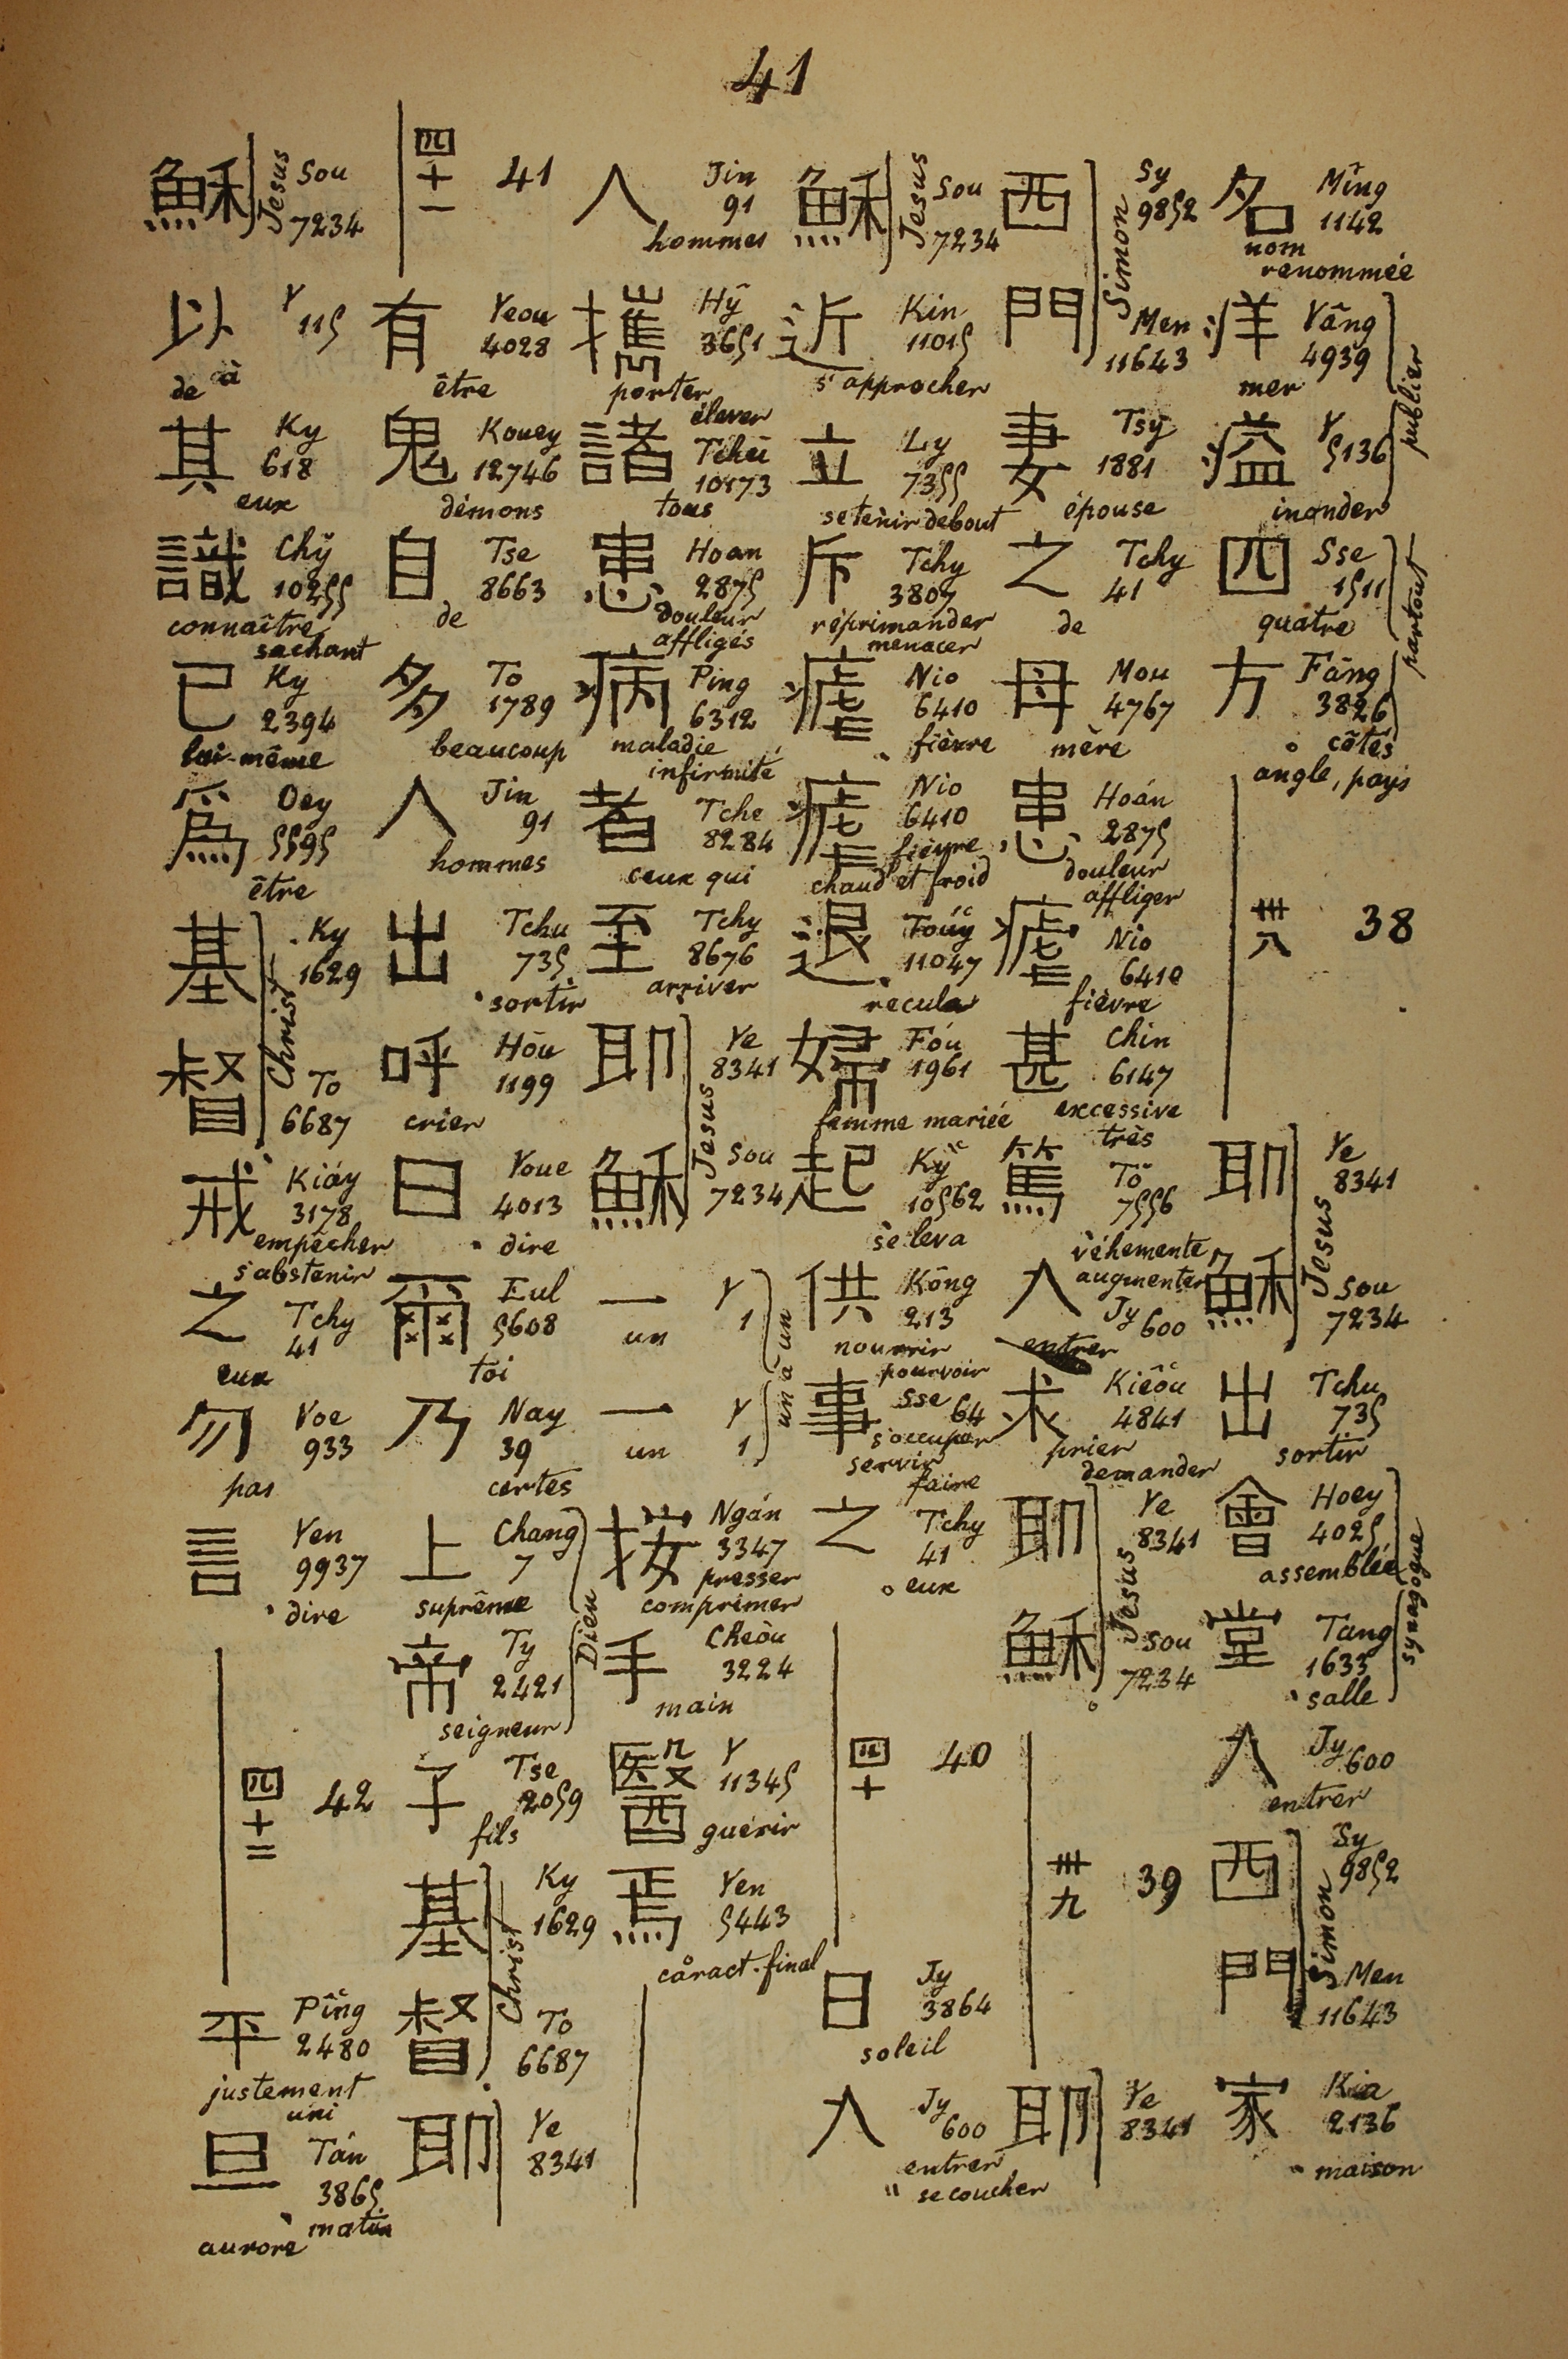 41
名 Mîng 1142 nom renommée
洋 Yâng 4939 mer
溢 Y 5136 inonder
publier
四 Sse 1511 quatre
方 Fāng 3826 côtés angle, pays
partout
卅八 38
耶 Ye 8341
穌 Sou 7234
Jesus
出 Tchu 735 sortir
會 Hoey 4025 assemblée
堂 Tang 1633 salle
synagogue
入 Jy 600 entrer
西 Sy 9852
門 Men 11643
Simon
家 Kia 2136 maison
西 Sy 9852
門 Men 11643
Simon
妻 Tsy 1881 épouse
之 Tchy 41 de
母 Mou 4767 mère
患 Hoán 2875 douleur affliger
瘧 Nio 6410 fièvre
甚 Chin 6147 excessive très
篤 To 7556 véhemente augmenter
入 Jy 600 entrer
求 Kiêou 4841 prier demander
耶 Ye 8341
穌 Sou 7234
Jesus
卅九 39
耶 Ye 8341
穌 Sou 7234
Jesus
近 Kin 11015 s'approcher
立 Ly 7355 se tenir debout
斥 Tchy 3807 réprimander menacer
瘧 Nio 6410 fièvre
瘧 Nio 6410 fièvre chaud et froid
退 Toúy 11047 recula
婦 Fóu 1961 femme mariée
起 Ky 10562 se leva
供 Kōng 213 nourrir pourvoir
事 Sse 64 s'occuper servir faire
之 Tchy 41 eux
四十 40
日 Jy 3864 soleil
入 Jy 600 entrer " se coucher
人 Jin 91 hommes
攜 Hy 3651 porter élever
諸 Tchū 10173 tous
患 Hoan 2875 douleur affligés
病 Ping 6312 maladie infirmité
者 Tche 8284 ceux qui
至 Tchy 8676 arriver
耶 Ye 8341
穌 Sou 7234
Jesus
一 Y 1 un
一 Y 1 un
un à un
按 Ngán 3347 presser comprimer
手 Cheòu 3224 main
醫 Y 11345 guérir
焉 Yen 5443 caract. final
四十一 41
有 Yeou 4028 être
鬼 Kouey 12746 démons
自 Tse 8663 de
多 To 1789 beaucoup
人 Jin 91 hommes
出 Tchu 735 sortir
呼 Hōu 1199 crier
曰 Youe 4013 dire
爾 Eul 5608 toi
乃 Nay 39 certes
上 Chang 7 suprême
帝 Ty 2421 seigneur
Dieu
子 Tse 2059 fils
基 Ky 1629
督 To 6687
Christ
耶 Ye 8341
穌 Sou 7234
Jesus
以 Y 115 de à
其 Ky 618 eux
識 Chy 10255 connaître sachant
己 Ky 2394 lui-même
爲 Oey 5595 être
基 Ky 1629
督 To 6687
Christ
戒 Kiáy 3178 empêcher s'abstenir
之 Tchy 41 eux
勿 Voe 933 pas
言 Yen 9937 dire
四十二 42
平 Pîng 2480 justement uni
旦 Tán 3865 matin aurore